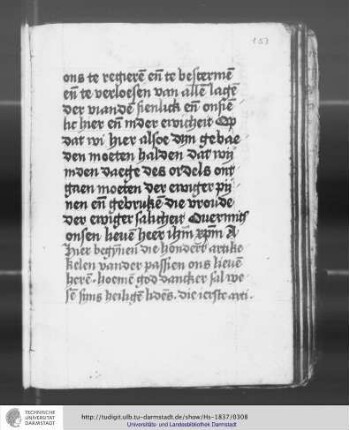 153
ons te regieren eñ te bescermē
eñ te verloesen van allē lagē
der viandē sienlick eñ onsiē
lic hier eñ inder ewicheit Op
dat wi hier alsoe dijn gebae
den moeten halden dat wij
inden daege des ordels ont
gaen moeten der ewiger pij
nen eñ gebrukē die vroude
der ewiger salicheit Ouermits
onsen lieuē heer ihm xpm A
Hier begijnen die hondert artike
kelen vander passien ons lieuē
herē. hoemē god dancker sal we
sē sijns heiligē lidēs. die ierste arti.
TECHNISCHE
UNIVERSITÄT
DARMSTADT
http://tudigit.ulb.tu-darmstadt.de/show/Hs-1837/0308
Universitäts- und Landesbibliothek Darmstadt